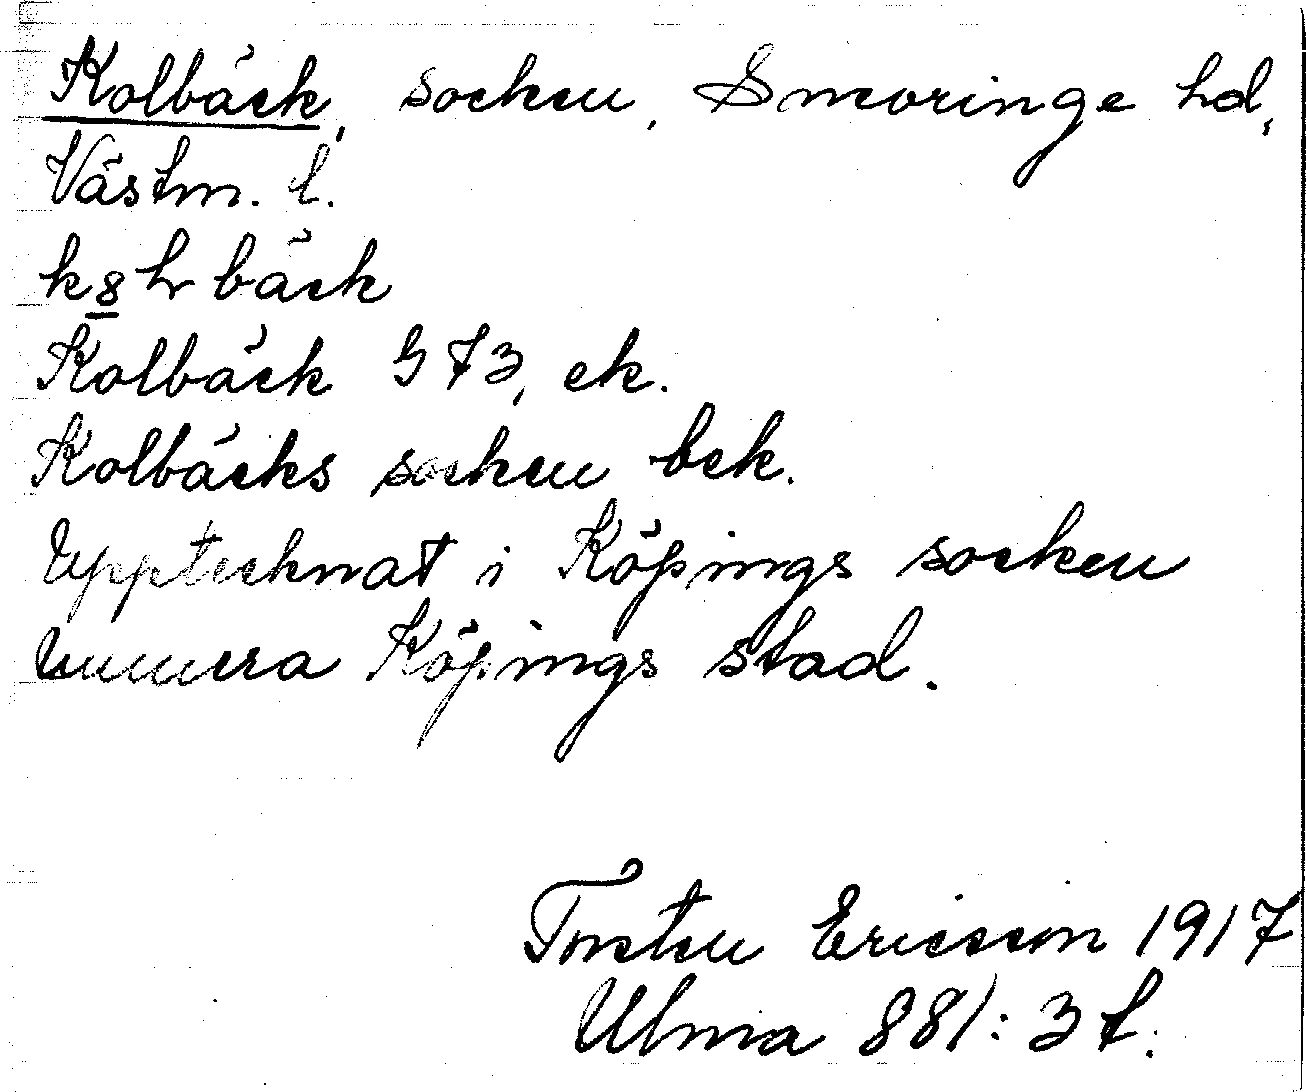 Kolbäck, socken, Snevringe hd,
Västm. l.
k8hrbäck
Kolbäck G73, ek.
Kolbäcks socken bek.
Upptecknat i Köpings socken
numera Köpings stad.
Torsten Ericsson 1917
Ulma 881:3 f.